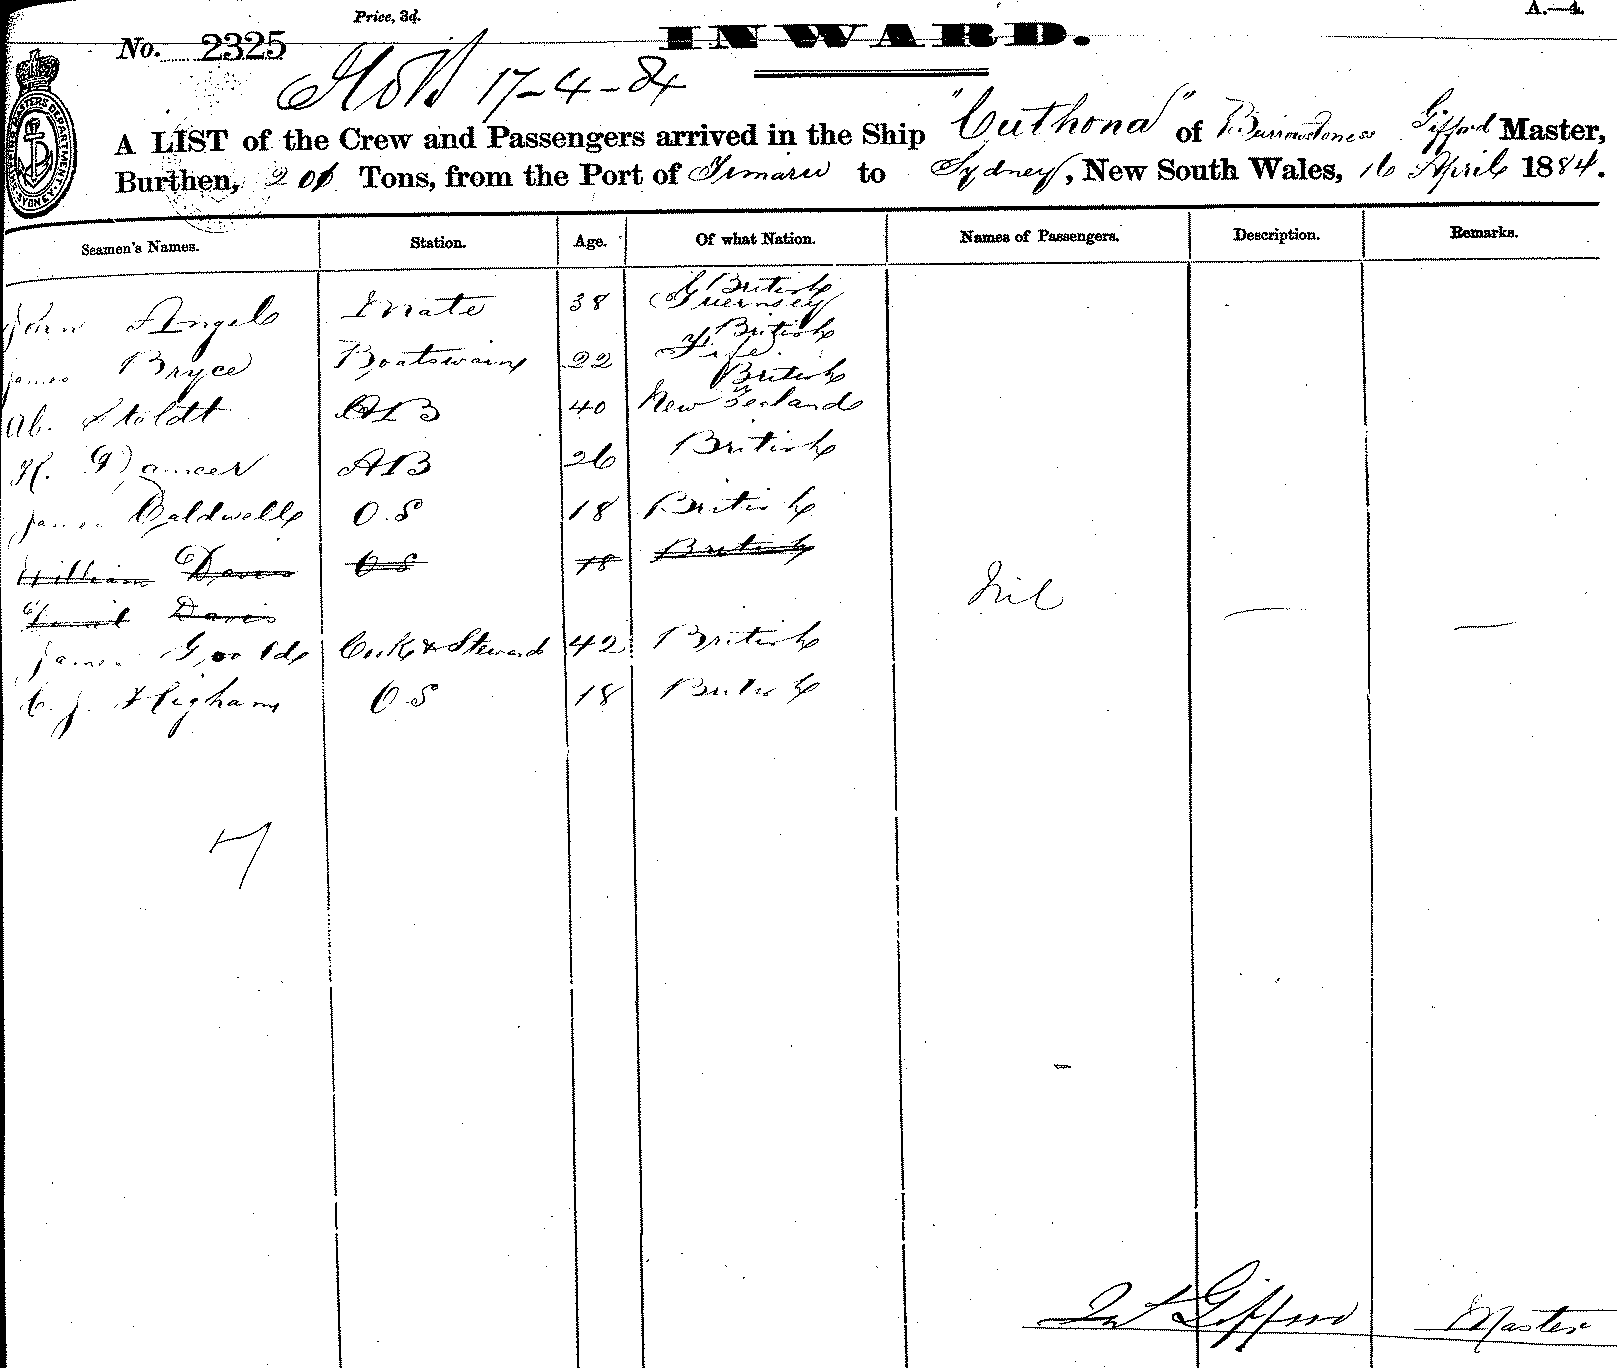 Price, 3d.
A.—4.
INWARD.
No. 2325
17-4-84
A LIST of the Crew and Passengers arrived in the Ship "Cuthona" of Burrowstoness Gifford Master,
Burthen, 201 Tons, from the Port of Timaru to Sydney, New South Wales, 16 April 1884.
Seamen's Names. Station. Age. Of what Nation. Names of Passengers. Description. Remarks.
John Angel Mate 38 British Guernsey
James Bryce Boatswain 22 British Fife
Ab. Stoldt AB 40 British New Zealand
H. Dancer AB 26 British
James Caldwell O.S 18 British
William Davis OS 18 British
Nil — —
Davis
James Goold Cook & Steward 42 British
C. J. Higham OS 18 British
7
Gifford Master